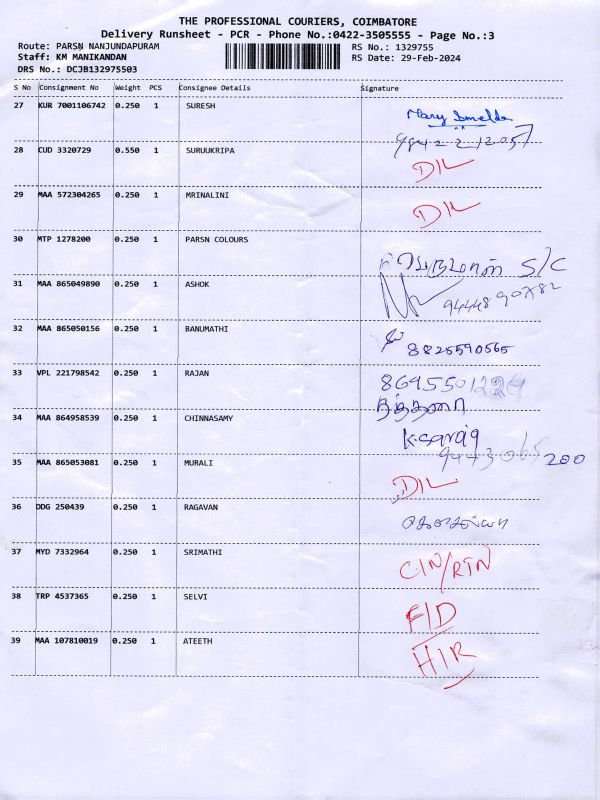 THE PROFESSIONAL COURIERS, COIMBATORE
Delivery Runsheet - PCR - Phone No.:0422-3505555 - Page No.:3
Route: PARSN NANJUNDAPURAM RS No.: 1329755
Staff: KM MANIKANDAN RS Date: 29-Feb-2024
DRS No.: DCJB132975503
S No Consignment No Weight PCS Consignee Details Signature
27 KUR 7001106742 0.250 1 SURESH Mary Imelda
9842212057
28 CUD 3320729 0.550 1 SURUUKRIPA D/L
29 MAA 572304265 0.250 1 MRINALINI D/L
30 MTP 1278200 0.250 1 PARSN COLOURS பெருமாள் S/C
31 MAA 865049890 0.250 1 ASHOK 9444890782
32 MAA 865050156 0.250 1 BANUMATHI 8825590565
33 VPL 221798542 0.250 1 RAJAN
34 MAA 864958539 0.250 1 CHINNASAMY K.saraig
9443065200
35 MAA 865053081 0.250 1 MURALI D/L
36 DDG 250439 0.250 1 RAGAVAN
37 MYD 7332964 0.250 1 SRIMATHI CIN/RTN
38 TRP 4537365 0.250 1 SELVI F/D
39 MAA 107810019 0.250 1 ATEETH H/R